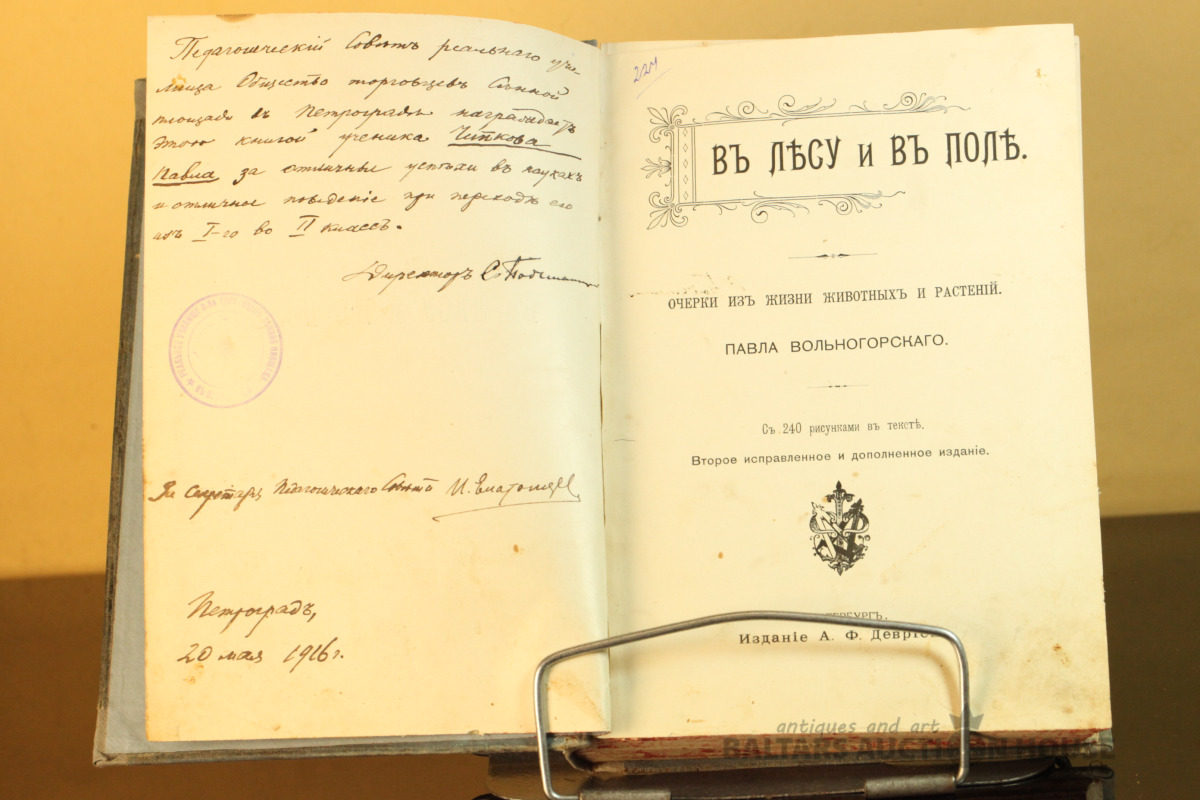 Педагогическій Совѣтъ реальнаго учи-
лища Общество торговцевъ Сѣнной
площади въ Петроградѣ награждаетъ
этою книгой ученика Читкова
Павла за отличные успѣхи въ наукахъ
и отличное поведеніе при переходѣ его
изъ I-го во II классъ.
Директоръ С.
За Секретаря Педагогическаго Совѣта И.
Петроградъ,
20 мая 1916 г.
224
ВЪ ЛѢСУ И ВЪ ПОЛѢ.
ОЧЕРКИ ИЗЪ ЖИЗНИ ЖИВОТНЫХЪ И РАСТЕНІЙ.
ПАВЛА ВОЛЬНОГОРСКАГО.
Съ 240 рисунками въ текстѣ.
Второе исправленное и дополненное изданіе.
Изданіе А. Ф.
antiques and art
BALTARS AUCTION HOUSE